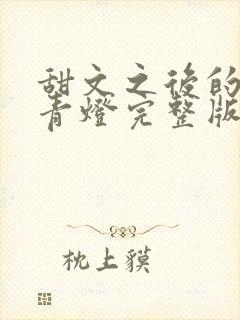 甜文之後的
青燈完整版
枕上貘